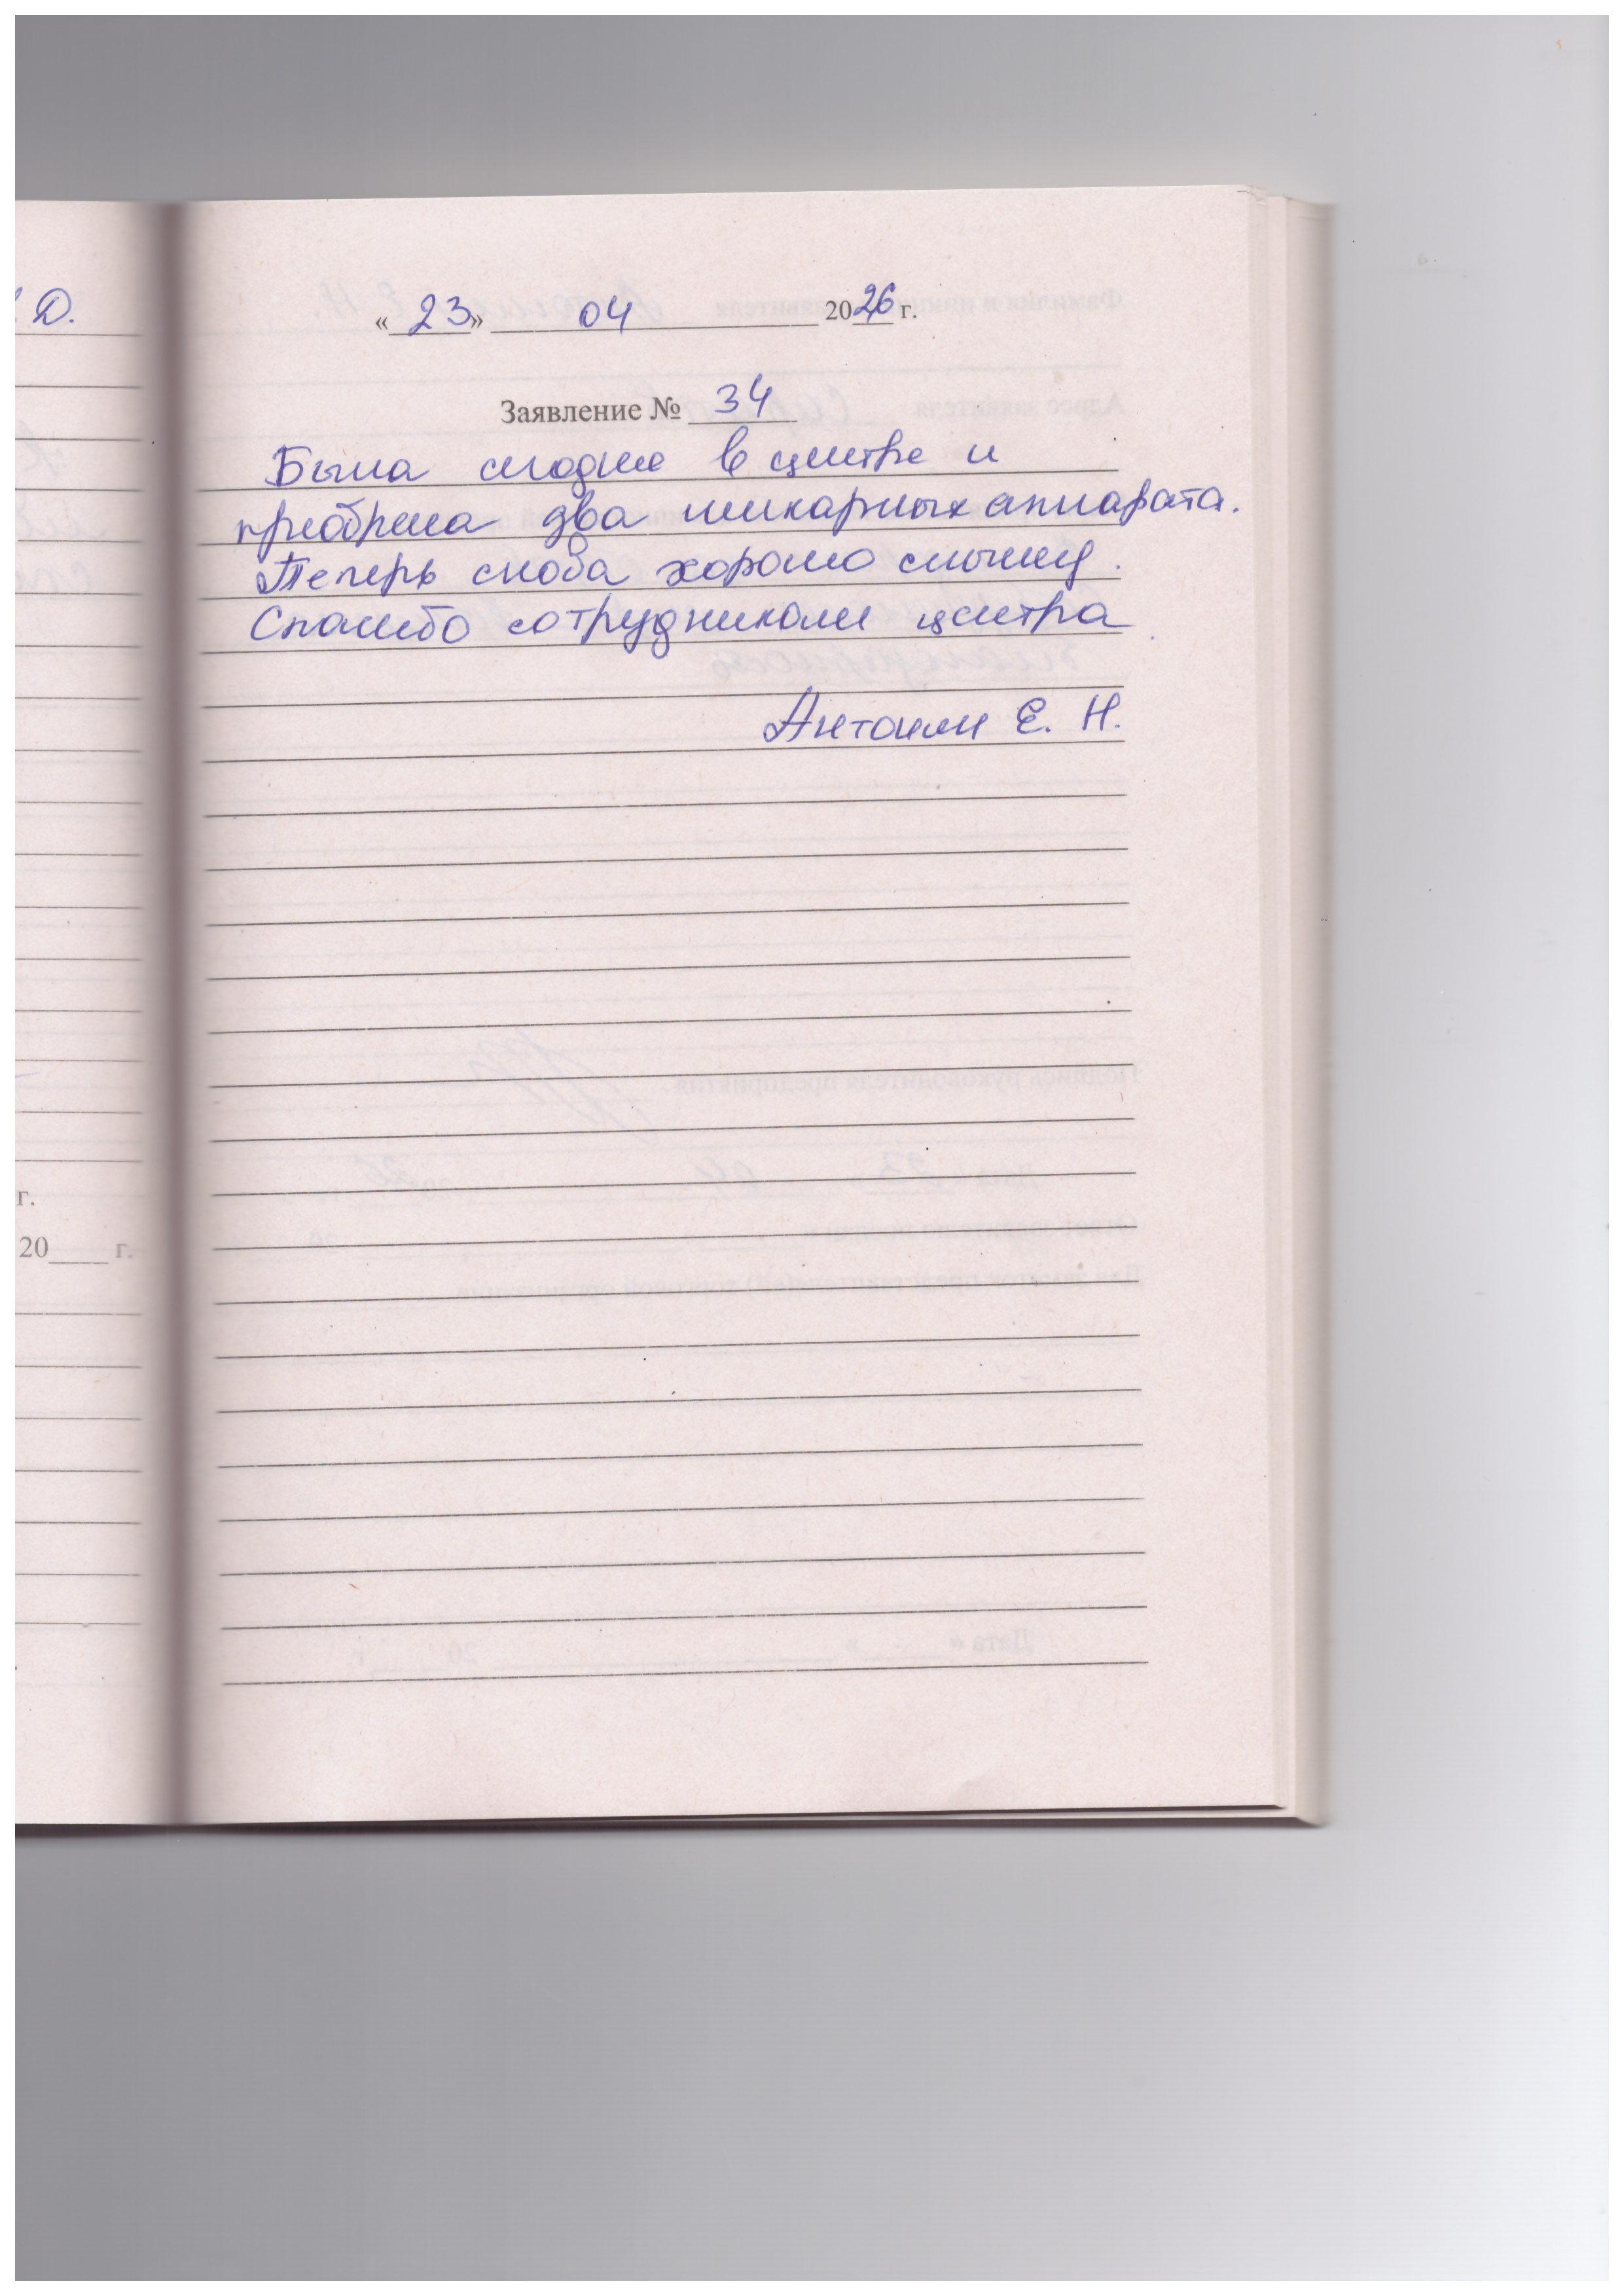 Д.
«23» 04 2026 г.
Заявление № 34
Была сегодня в центре и
приобрела два шикарных аппарата.
Теперь снова хорошо слышу.
Спасибо сотрудникам центра
Е. Н.
г.
20____ г.